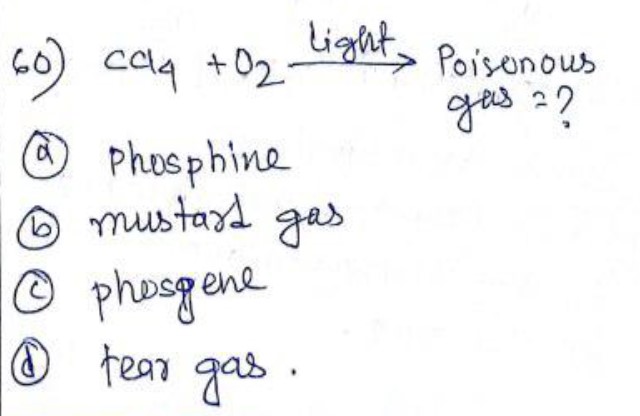 60) CCl4 + O2 Light→ Poisonous
gas = ?
(a) phosphine
(b) mustard gas
(c) phosgene
(d) tear gas.